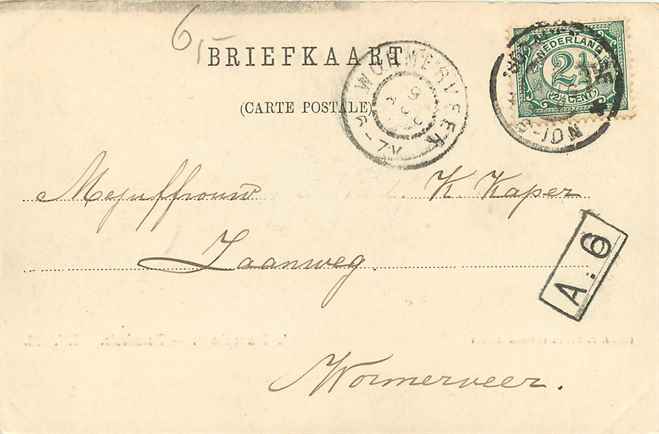 6,-
BRIEFKAART
(CARTE POSTALE)
WORMERVEER
6-7V
NEDERLAND
2½
(2½ CENT)
Mejuffrouw K. Kaper
Zaanweg.
A.6
Wormerveer.